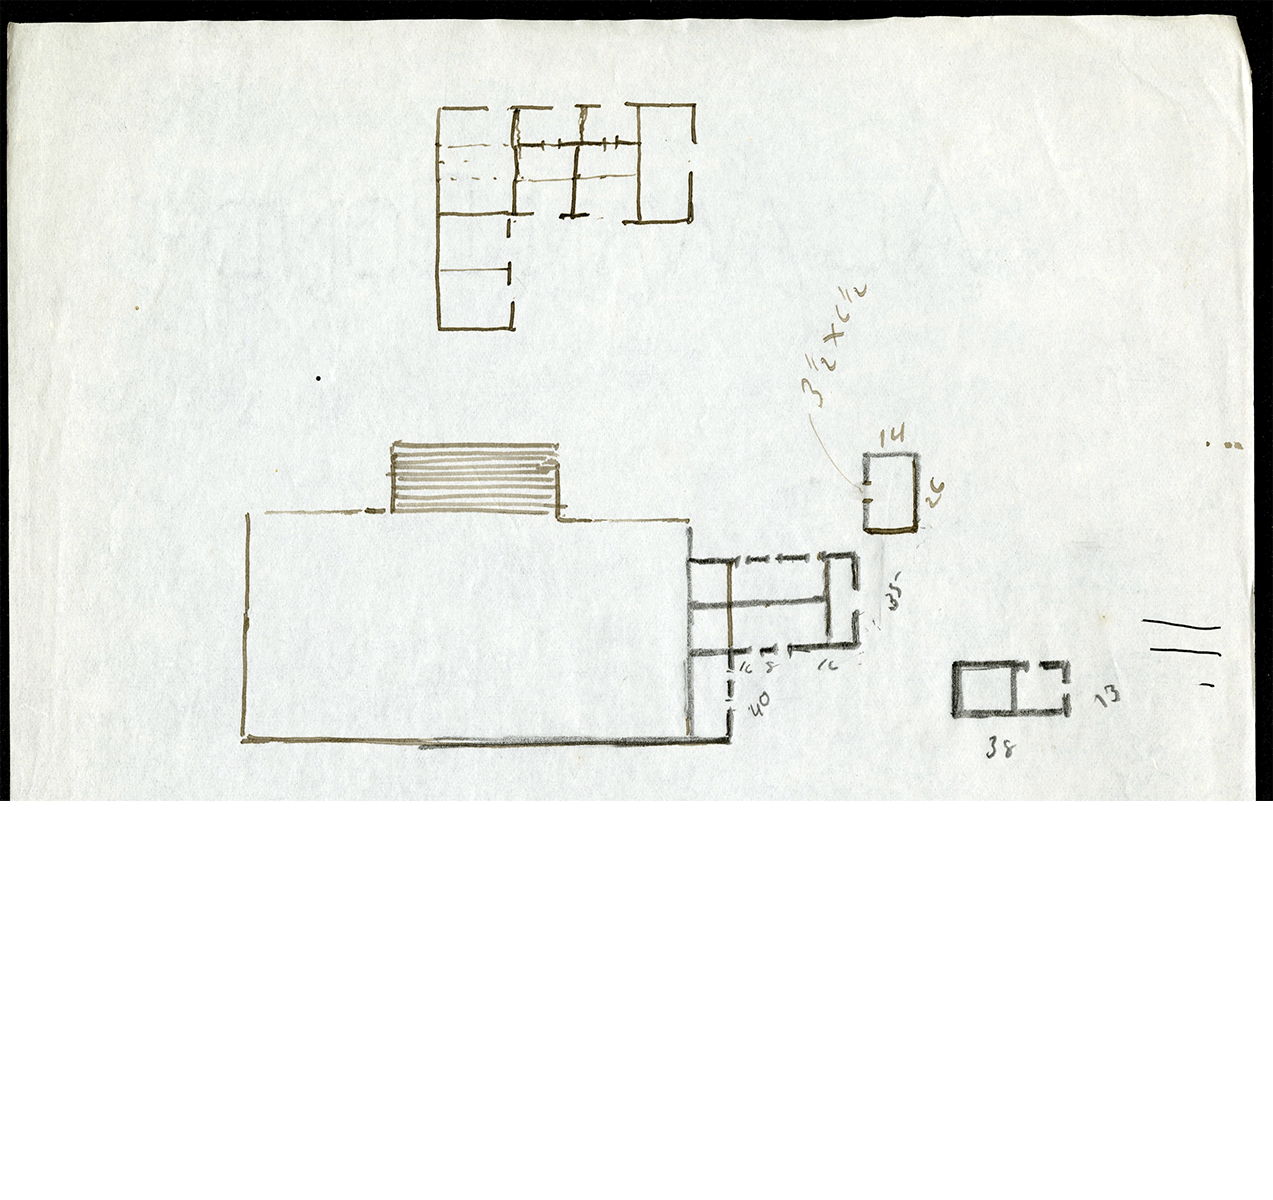 3 1/2 x 6 1/2
14
26
35
16 8 16
40
13
38